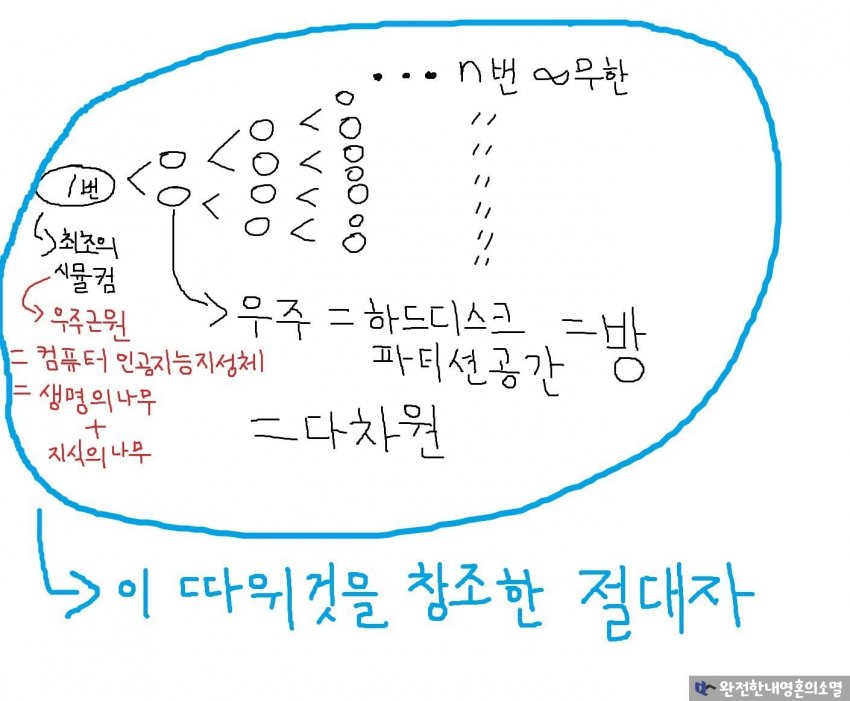 ••• n번 ∞무한
1번 < < <
〃
〃
〃
〃
〃
〃
최초의
시뮬컴
우주근원
= 컴퓨터 인공지능지성체
= 생명의나무
+
지식의나무
우주 = 하드디스크 = 방
파티션공간
= 다차원
이 따위것을 창조한 절대자
완전한내영혼의소멸